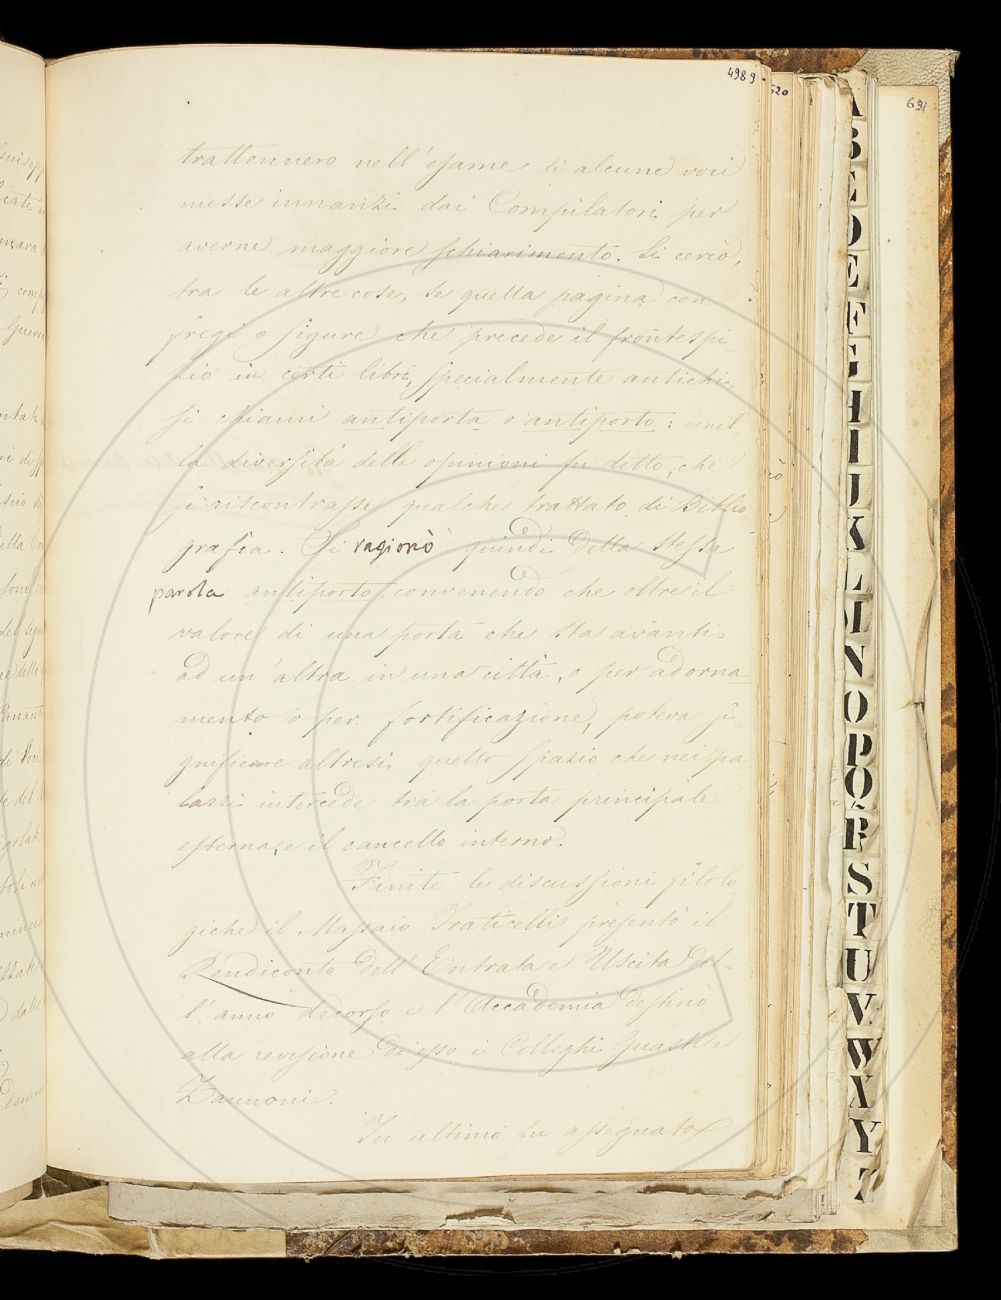 4989
520
691
trattennero nell'esame di alcune voci
messe innanzi dai Compilatori per
averne maggiore schiarimento. Si cercò,
tra le altre cose, se quella pagina con
fregi o figure che precede il frontespi-
zio in certi libri, specialmente antichi,
si chiami antiporta o antiporto: e nel-
la diversità delle opinioni fu detto, che
si riscontrasse qualche trattato di Biblio-
grafia. Si ragionò quindi della stessa
parola antiporto, convenendo che oltre il
valore di una porta che sta avanti
ad un'altra in una città, o per adorna-
mento o per fortificazione, poteva si-
gnificare altresì quello spazio che nei pa-
lazzi intercede tra la porta principale
esterna, e il cancello interno.
Finite le discussioni filolo-
giche il Massaio Fraticelli presentò il
Rendiconto dell'Entrata e Uscita del-
l'anno decorso e l'Accademia destinò
alla revisione di esso i Colleghi Guasti e
Zannoni.
In ultimo fu assegnato
A
B
C
D
E
F
G
H
I
J
K
L
M
N
O
P
Q
R
S
T
U
V
W
X
Y
Z